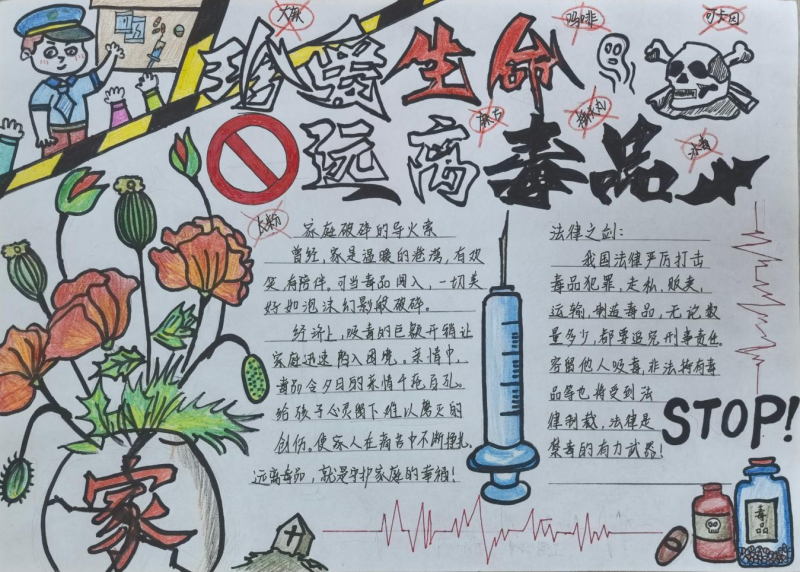 大麻
吗啡
可卡因
珍爱生命
麻古
摇头丸
远离毒品
冰毒
K粉
家庭破碎的导火索
曾经，家是温暖的港湾，有欢
笑有陪伴。可当毒品闯入，一切美
好如泡沫幻影般破碎。
经济上，吸毒的巨额开销让
家庭迅速陷入困境。亲情中，
毒品令夕日的亲情千疮百孔。
给孩子心灵留下难以磨灭的
创伤。使家人在痛苦中不断挣扎。
远离毒品，就是守护家庭的幸福！
法律之剑：
我国法律严厉打击
毒品犯罪，走私、贩卖、
运输、制造毒品，无论数
量多少，都要追究刑事责任。
容留他人吸毒，非法持有毒
品等也将受到法
律制裁，法律是
禁毒的有力武器！
STOP!
家
毒品